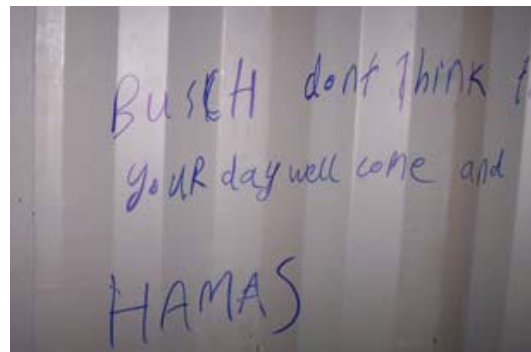 BUSCH dont Think
your day well come and
HAMAS